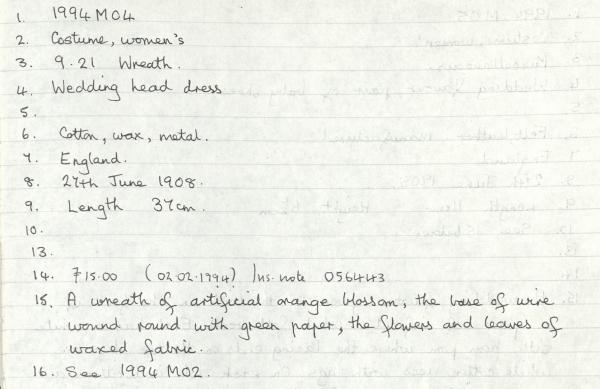 1. 1994 M04
2. Costume, women's
3. 9.21 Wreath.
4. Wedding head dress
5.
6. Cotton, wax, metal.
7. England.
8. 27th June 1908.
9. Length 37cm.
10.
13.
14. £15.00 (02.02.1994) Ins. note 056443
15. A wreath of artificial orange blossom, the base of wire
wound round with green paper, the flowers and leaves of
waxed fabric.
16. See 1994 M02.